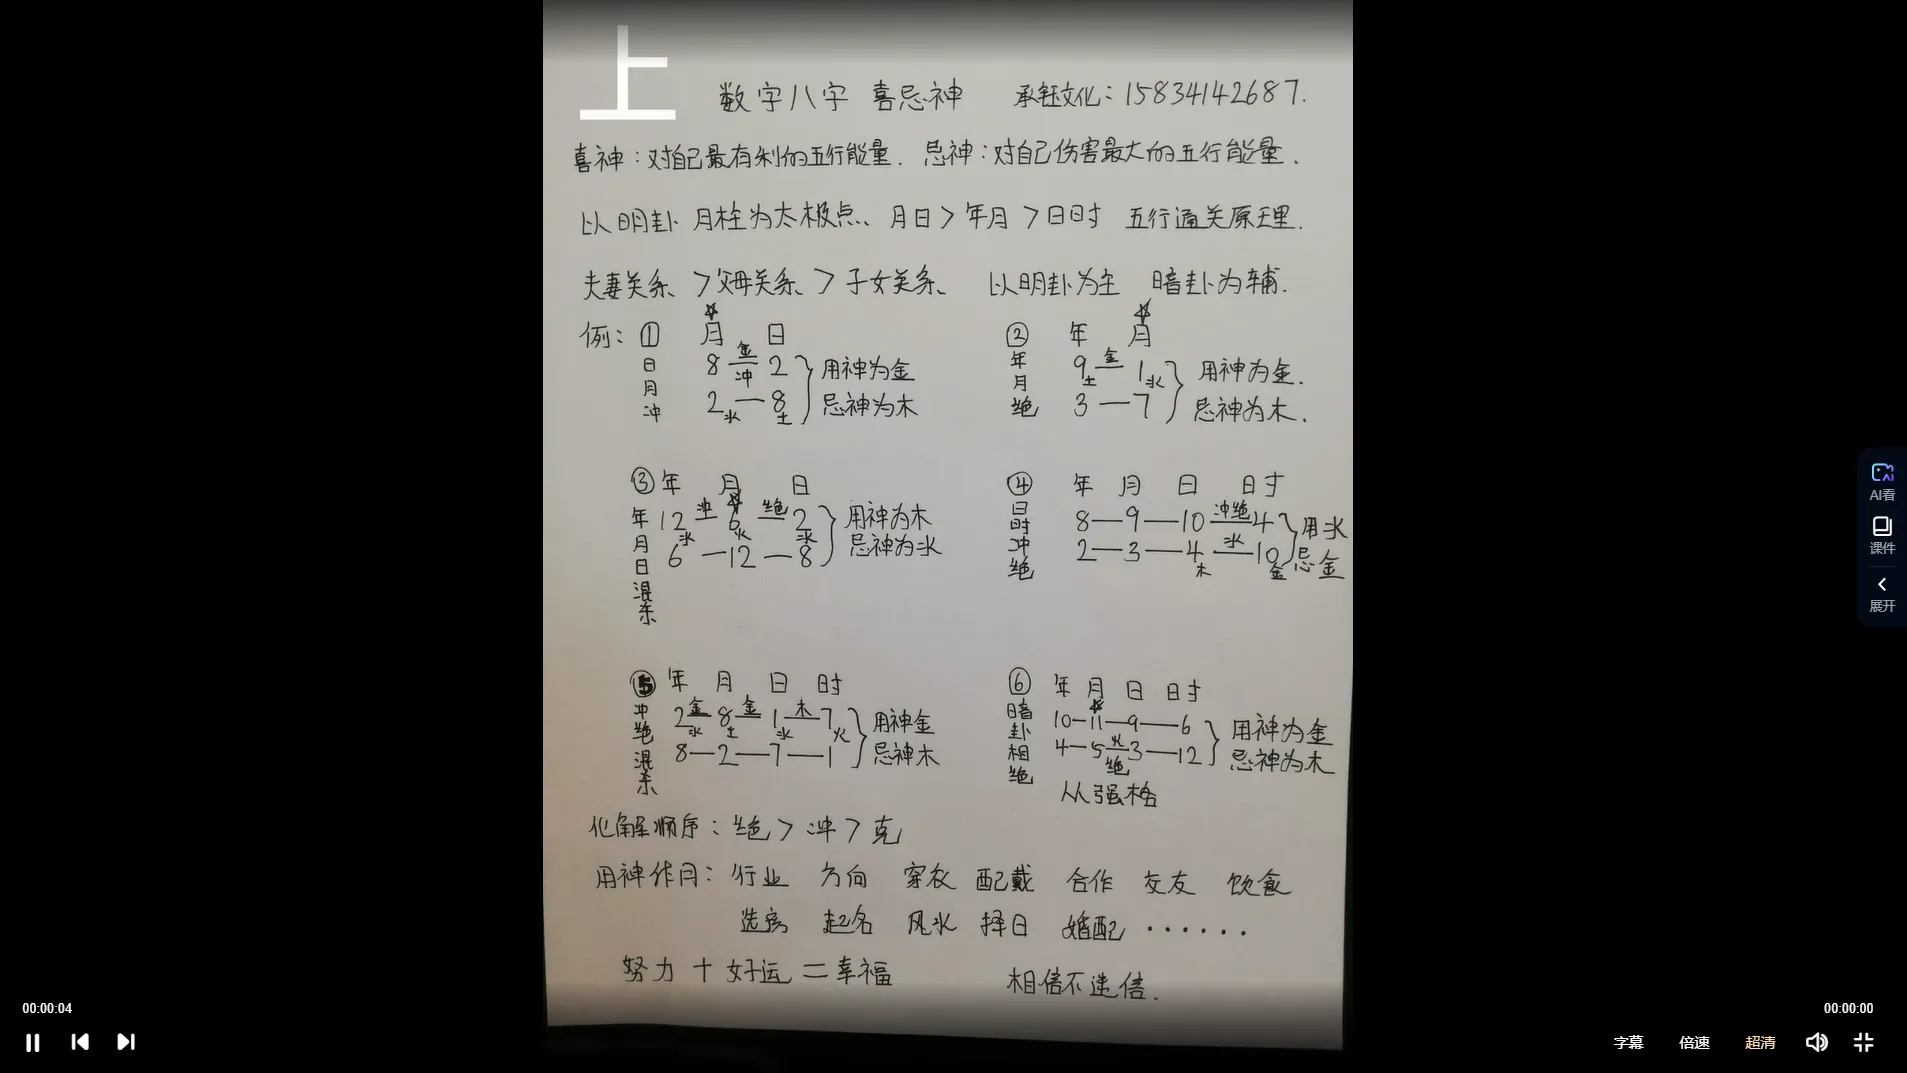 上
数字八字 喜忌神 承钰文化：15834142687.
喜神：对自己最有利的五行能量. 忌神：对自己伤害最大的五行能量.
以明卦 月柱为太极点、月日>年月>日时 五行通关原理.
夫妻关系 >父母关系 > 子女关系、 以明卦为主 暗卦为辅.
例：① 月 日
日月冲
8 金 冲 2
2水 — 8土
用神为金
忌神为木
② 年 月
年月绝
9土 金 — 1水
3 — 7
用神为金.
忌神为木.
③ 年 月 日
年月日混杂
12水 冲 — 6火 绝 — 2水
6 — 12 — 8
用神为木
忌神为水
④ 年 月 日 时
日时冲绝
8 — 9 — 10 冲绝 — 4
2 — 3 — 4木 水 — 10金
用水
忌金
⑤ 年 月 日 时
冲绝混杂
2水 金 — 8土 金 — 1水 木 — 7火
8 — 2 — 7 — 1
用神金
忌神木
⑥ 年 月 日 时
暗卦相绝
10 — 11 — 9 — 6
4 — 5 火 绝 3 — 12
用神为金
忌神为木
从强格
化解顺序：绝 > 冲 > 克
用神作用：行业 方向 穿衣 配戴 合作 交友 饮食
选房 起名 风水 择日 婚配 ······
努力 + 好运 = 幸福 相信不迷信.
AI看
课件
展开
00:00:04
00:00:00
字幕 倍速 超清